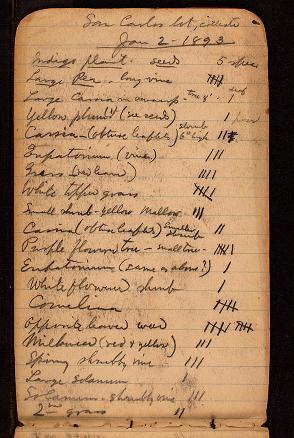 San Carlos lot, collecte
Jan 2 - 1893
Indigo plant - seeds 5 spec
Large Pea - long vine 𝍸
Large Cassia in swamp - tree 8' - 1
Yellow plant (see seeds) 1
Cassia (obtuse leaflets) shrub 6" high
Eupatorium (vine) III
Grass (red leaves) IIII
White tipped grass 𝍸
Small shrub - yellow Mallow III
Cassia (obtuse leaflets) Smaller shrub II
Purple flowered tree - small tree -
Eupatorium (same as above?) 1
White flowered shrub 1
Comelina 𝍸
Opposite leaved weed 𝍸 𝍸
Milkweed (red & yellow) III
Spiny shrubby vine III
Large solanum
Solanum - shrubby vine III
2nd grass II